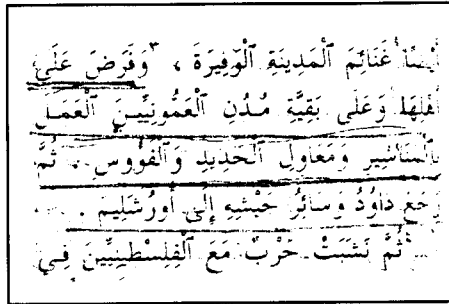 أَيْضًا غَنَائِمَ ٱلْمَدِينَةِ ٱلْوَفِيرَةَ ، ٣ وَفَرَضَ عَلَى
أَهْلِهَا وَعَلَى بَقِيَّةِ مُدُنِ ٱلْعَمُّونِيِّينَ ٱلْعَمَلَ
بِٱلْمَنَاشِيرِ وَمَعَاوِلِ ٱلْحَدِيدِ وَٱلْفُؤُوسِ . ثُمَّ
رَجَعَ دَاوُدُ وَسَائِرُ جَيْشِهِ إِلَى أُورُشَلِيمَ .
ثُمَّ نَشَبَتْ حَرْبٌ مَعَ ٱلْفِلِسْطِينِيِّينَ فِي